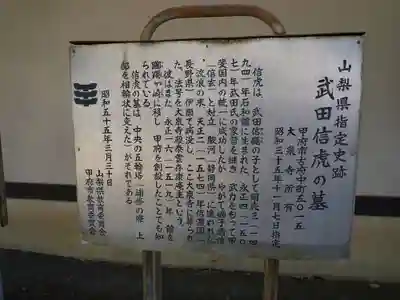 山梨県指定史跡
武田信虎の墓
甲府市古府中町五〇一五
大泉寺所有
昭和三十五年十一月七日指定
信虎は、武田信縄の子として明応三(一四
九四)年石和館に生まれた。永正四(一五〇
七)年武田氏の家督を継ぎ、武力をもって甲
斐国内の統一に成功したが、やがて嫡子晴信
(信玄)と対立、駿河(静岡県)に追われた。
流浪の末、天正二(一五七四)年信濃国
(長野県)伊那で病没し、ここ大泉寺に葬られ
た。法号を大泉寺殿泰雲存康庵主という。
彼はまた、永正一六(一五一九)年、館を
躑躅ヶ崎に移し、甲府を創設したことでも知
られている。
信虎の墓は、中央の五輪塔(補修の際、上
部を相輪状に変えた)がそれである。
昭和五十五年三月三十日
山梨県教育委員会
甲府市教育委員会